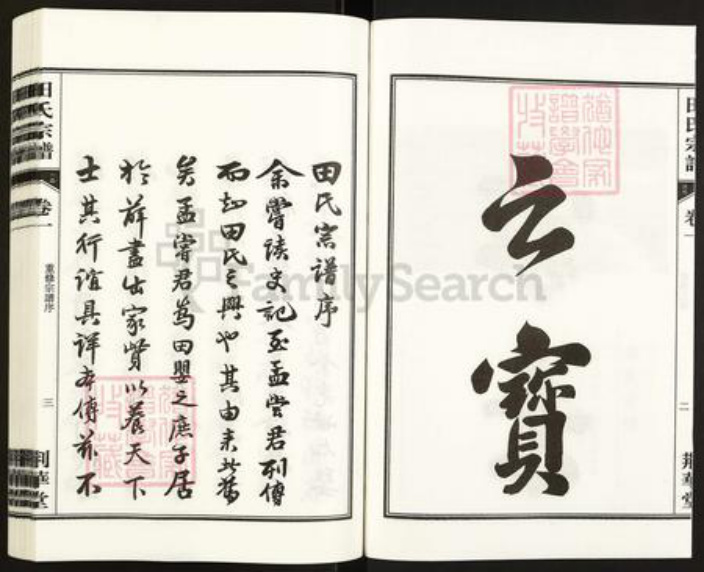 之寶
田氏宗譜
卷一
二
荊華堂
田氏宗譜序
余嘗读史記至孟嘗君列傳
而知田氏之興也其由来此舊
矣孟嘗君為田嬰之庶子居
於薛盡出家貲以養天下
士其行谊具詳本傳茲不
田氏宗譜
卷一
重修宗譜序
三
荊華堂
FamilySearch